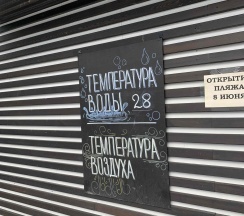 ТЕМПЕРАТУРА
ВОДЫ 28
ТЕМПЕРАТУРА
ВОЗДУХА
ОТКРЫТИ
ПЛЯЖА
8 ИЮНЯ